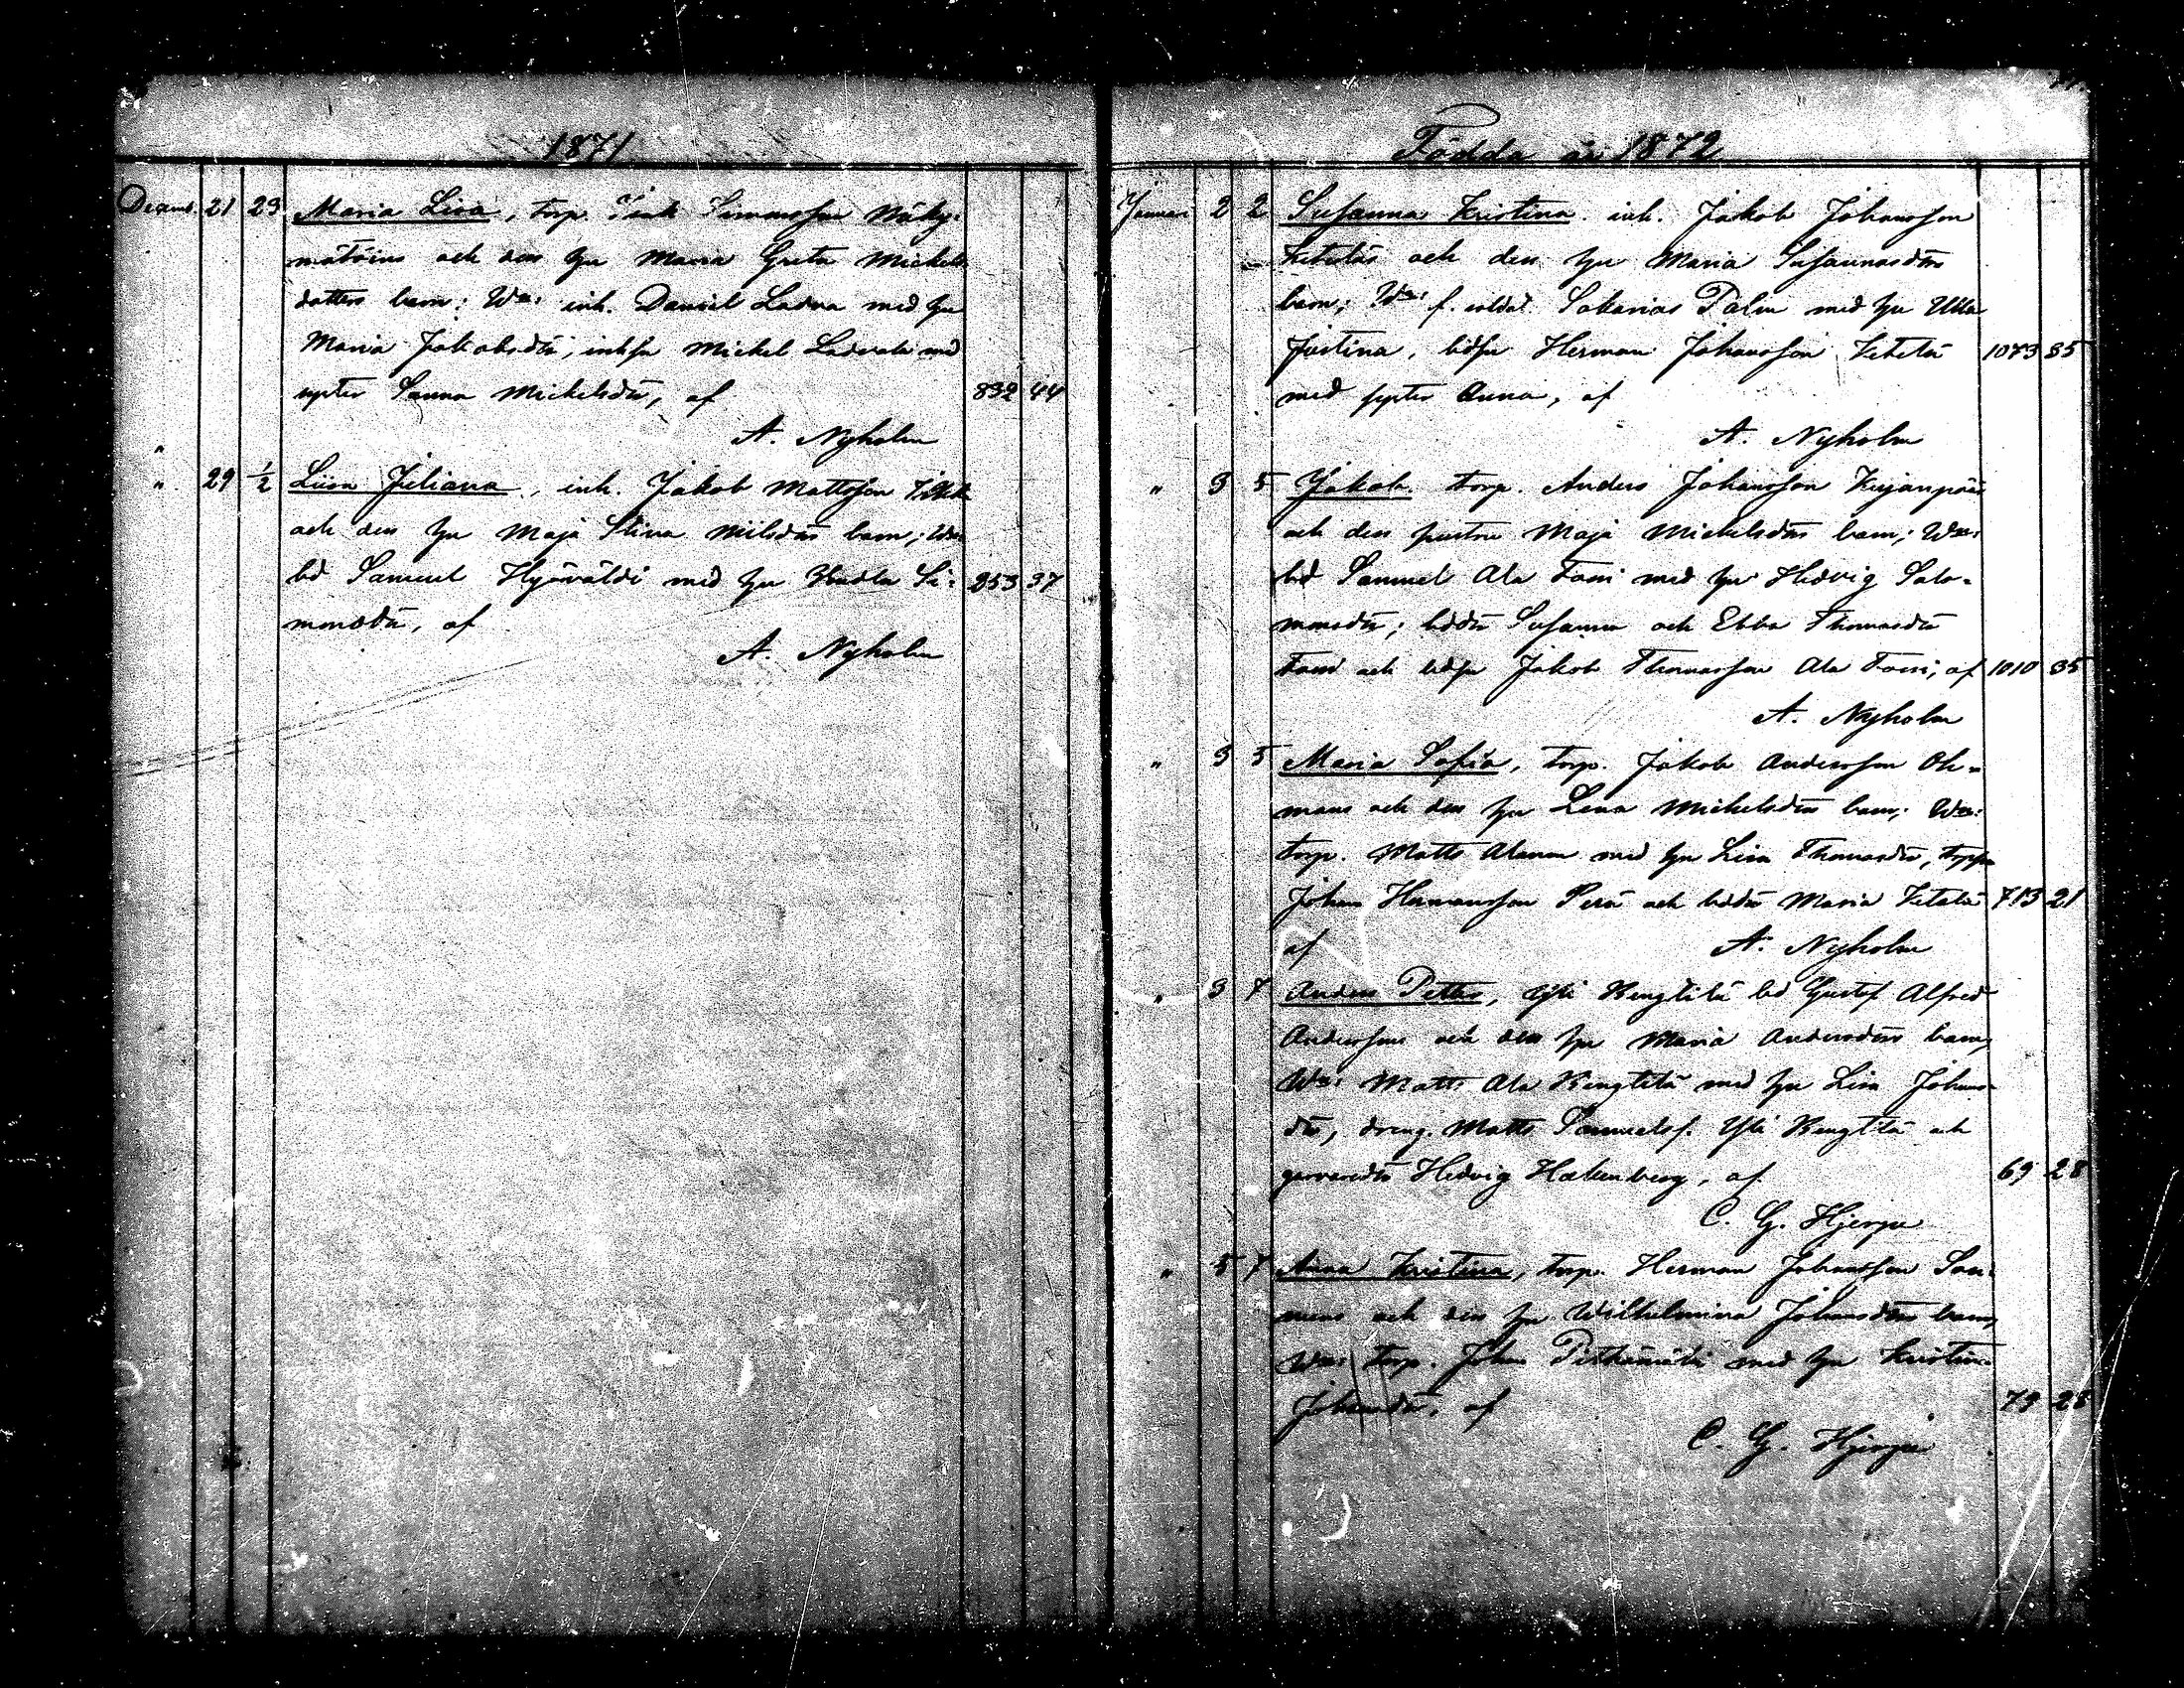 1871
Decemb. 21 23 Maria Lisa, torp. Isak Simonsson Näky-
mätöins och dess hu Maria Greta Mickels
dotters barn; Wn: inh. Daniel Ladva med hu
Maria Jakobsdr, inhsn Mickel Ladvala med
syster Sanna Mickelsdr, af 832 44
A. Nyholm
" 29 1/2 Liisa Juliana, inh. Jakob Mattsson
och dess hu Maja Stina Nilsdrs barn; Wn:
bd Samuel Hyöväldi med hu Si- 253 37
monsdr, af
A. Nyholm
Födda år 1872
Januari 2 2 Susanna Kristina inh. Jakob Johansson
Vetelis och dess hu Maria Susannasdrs
barn; Wn: f. soldat Sakarias Palm med hu Ulla
Justina, bdsn Herman Johansson Vetelä 1073 35
med syster Anna, af
A. Nyholm
" 3 5 Jakob torp. Anders Johansson Kujanpääs
och dess hustru Maja Mickelsdrs barn; Wn:
bd Samuel Ala Fossi med hu Hedvig Salo-
monsdr; bddr Susanna och Ebba Thomasdr
Fossi och bdsn Jakob Thomasson Ala Fossi, af 1010 35
A. Nyholm
" 3 5 Maria Sofia, torp. Jakob Andersson Oh-
mans och dess hu Lena Mickelsdrs barn; Wn:
torp. Matts Alanen med hu Lisa Thomasdr, torpsn
Johan Hermansson Perä och bddr Maria Vetelä 713 21
af A. Nyholm
" 3 7 Anders Petter, Yli Kengtilä bd Gustaf Alfred
Anderssons och dess hu Maria Andersdrs barn,
Wn: Matts Ala Kengtilä med hu Lisa Johans-
dr, dreng. Matts Samuelsf. Yli Kengtilä och
garvaredr Hedvig Hakenberg, af 69 28
C. G. Hjerpe
" 5 7 Anna Kristina, torp. Herman Johansson
och dess hu Wilhelmina Johansdrs barn,
Wn: torp. Johan Pitkämäki med hu Kristina
Johansdr, af 79 28
C. G. Hjerpe